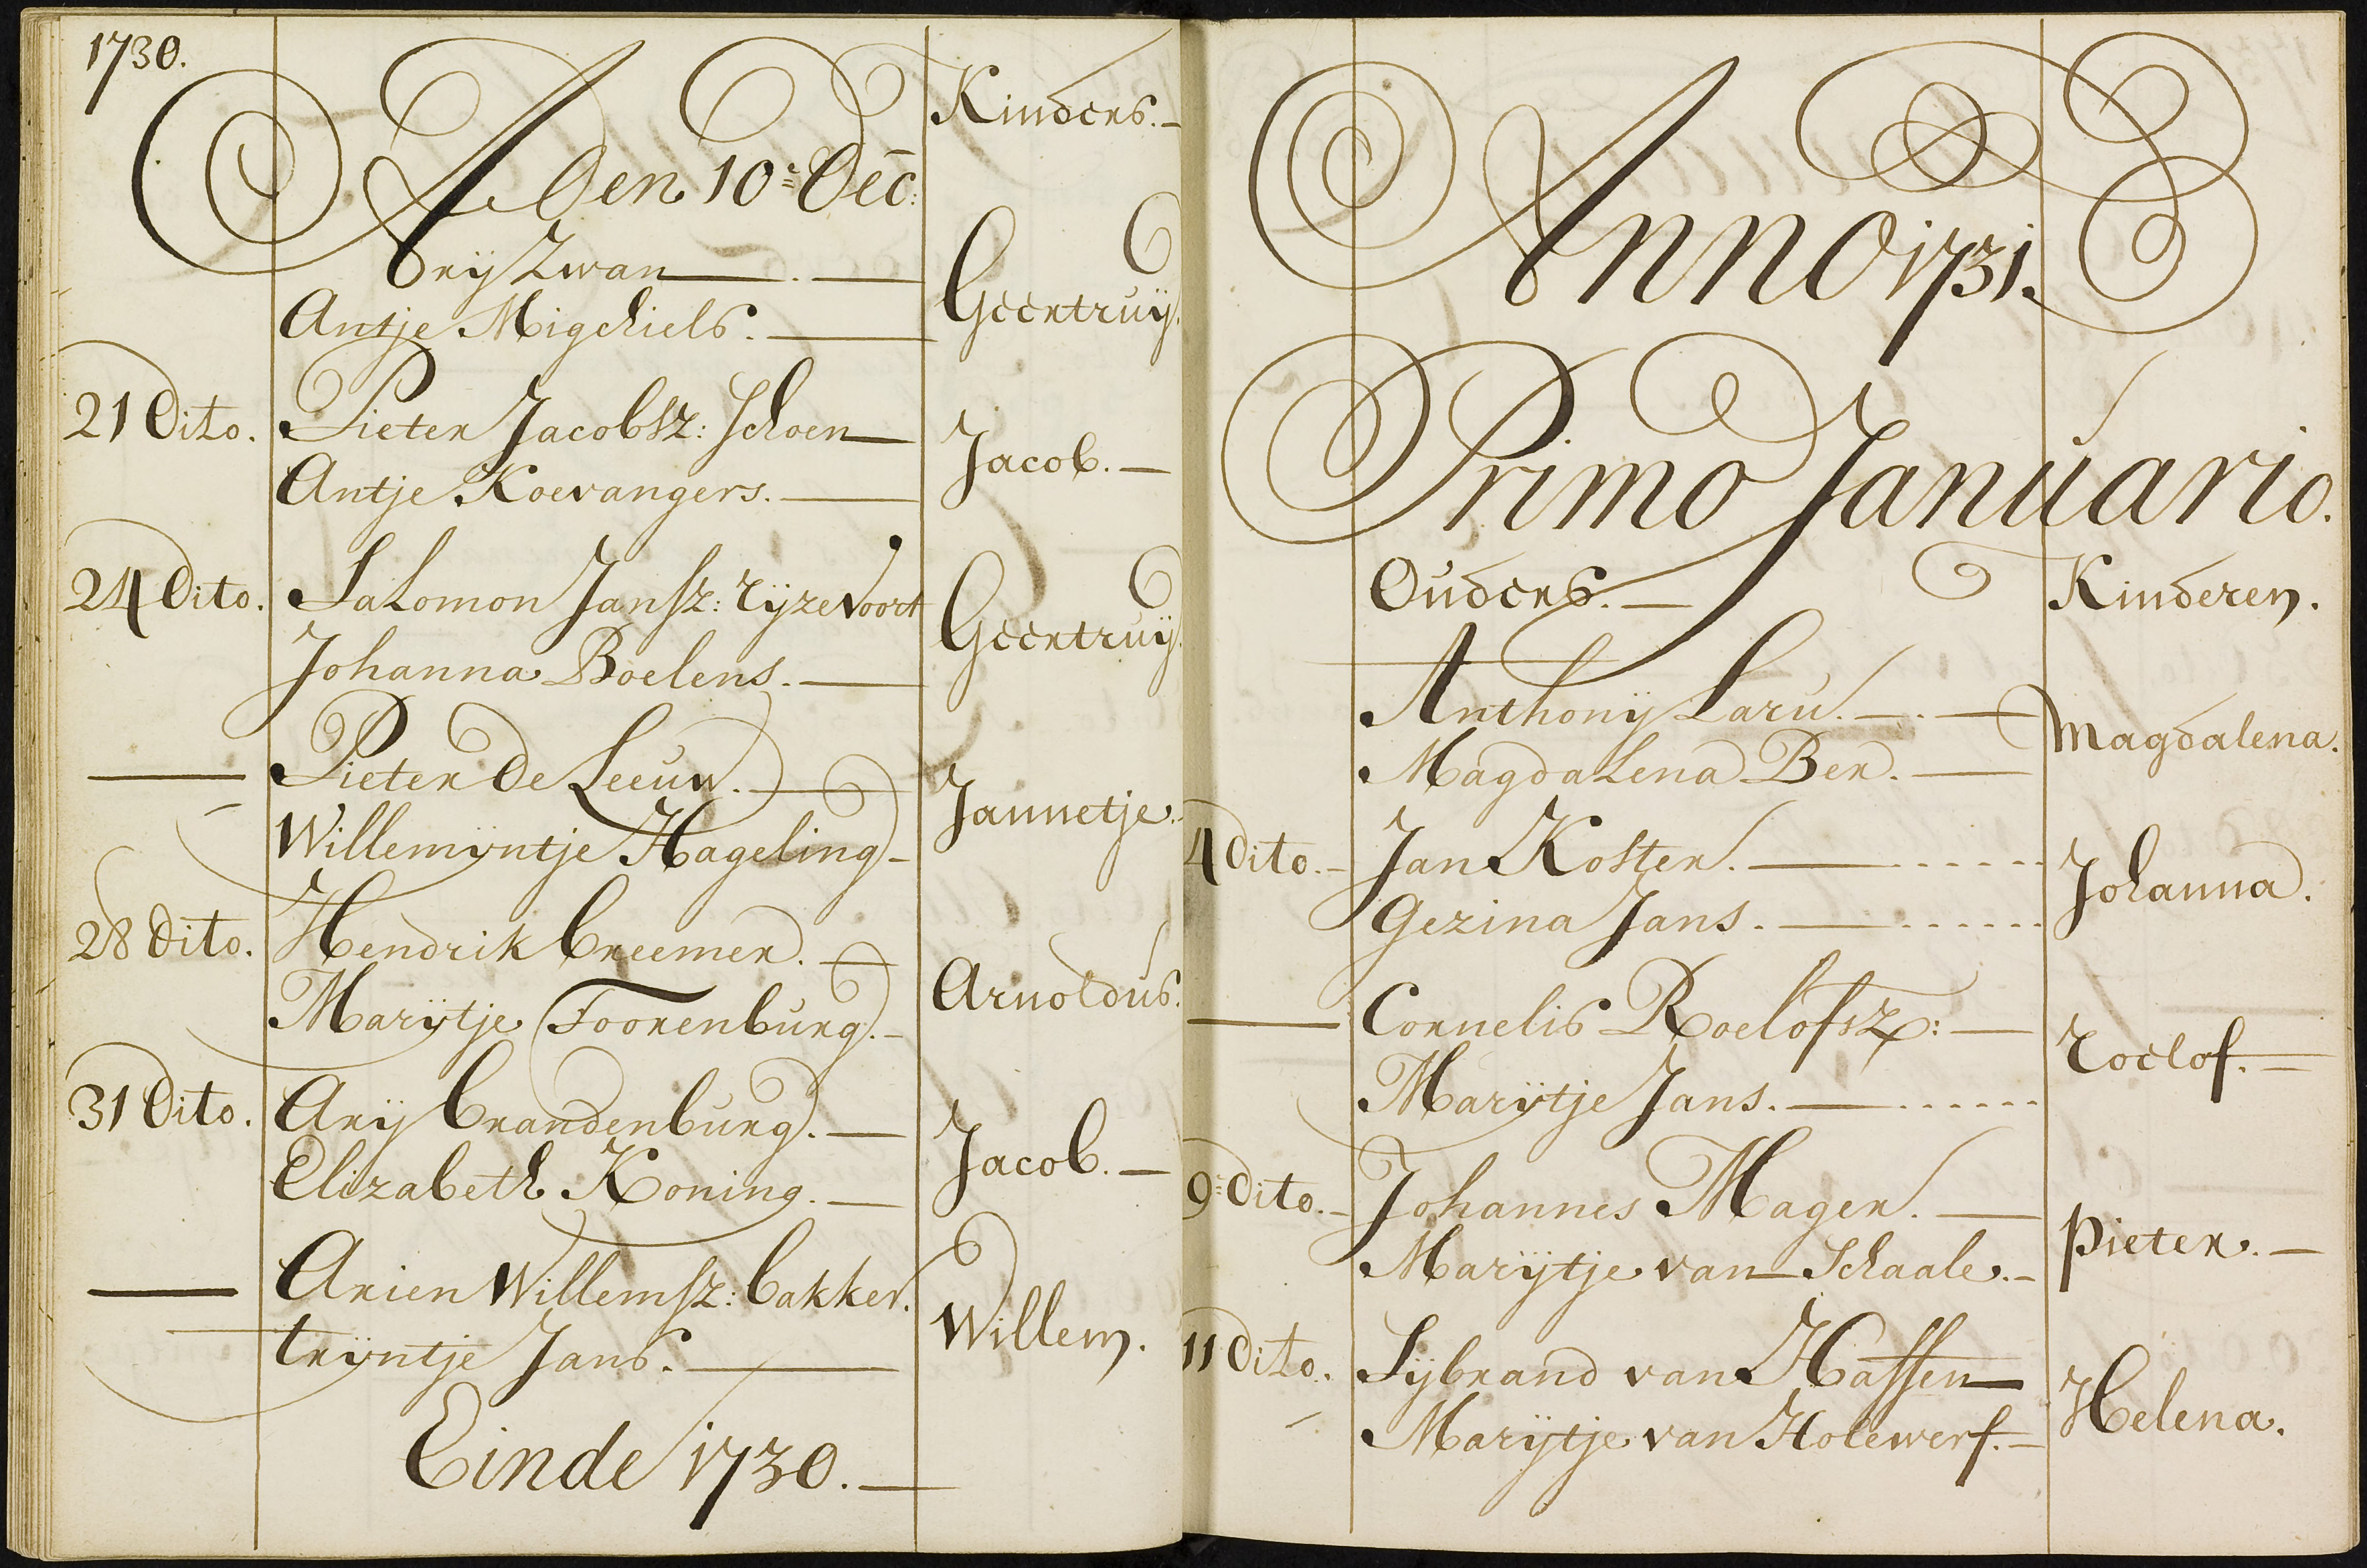 1730.
Kinders.
Den 10 Dec:
Arij Zwan
Antje Migchiels.
Geertruij.
21 Dito.
Pieter Jacobsz: Schoen
Antje Koevangers.
Jacob.
24 Dito.
Salomon Jansz: Rijzevoort
Johanna Boelens.
Geertruij.
Pieter de Leeuw.
Willemijntje Hageling
Jannetje.
28 Dito.
Hendrik Creemer.
Marijtje Toorenburg.
Arnoldus.
31 Dito.
Arij Brandenburg.
Elizabeth Koning.
Jacob.
Arien Willemsz: Bakker.
Trijntje Jans.
Willem.
Einde 1730.
Anno 1731.
Primo Januario.
Ouders.
Kinderen.
Anthonij Laru.
Magdalena Ber.
Magdalena.
4 Dito.
Jan Koster.
Gezina Jans.
Johanna.
Cornelis Roelofsz:
Marijtje Jans.
Roelof.
9 Dito.
Johannes Mager.
Marijtje van Schaale.
Pieter.
11 Dito.
Sijbrand van Hassen
Marijtje van Holewerf.
Helena.